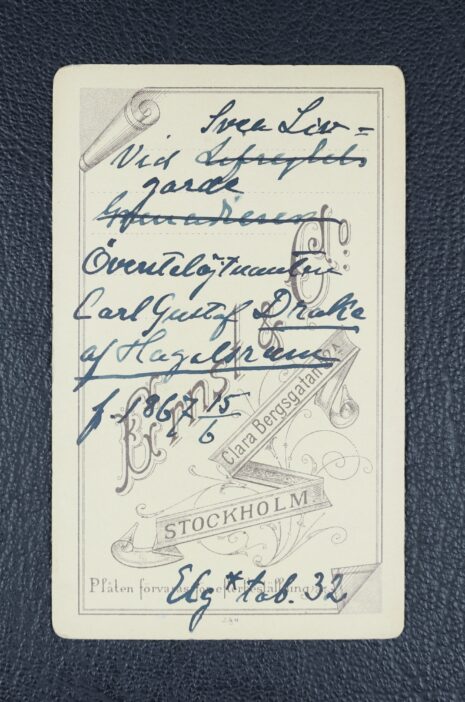 Svea Liv=
Vid Lifreg:ts
garde
Grenadieren
Överstelöjtnanten
Carl Gustaf Drake
af Hagelsrum
f. 1867 15/6
Ernst & Co:
Clara Bergsgatan
STOCKHOLM
Plåten förvaras för efterbeställning
Elg* tab. 32
244